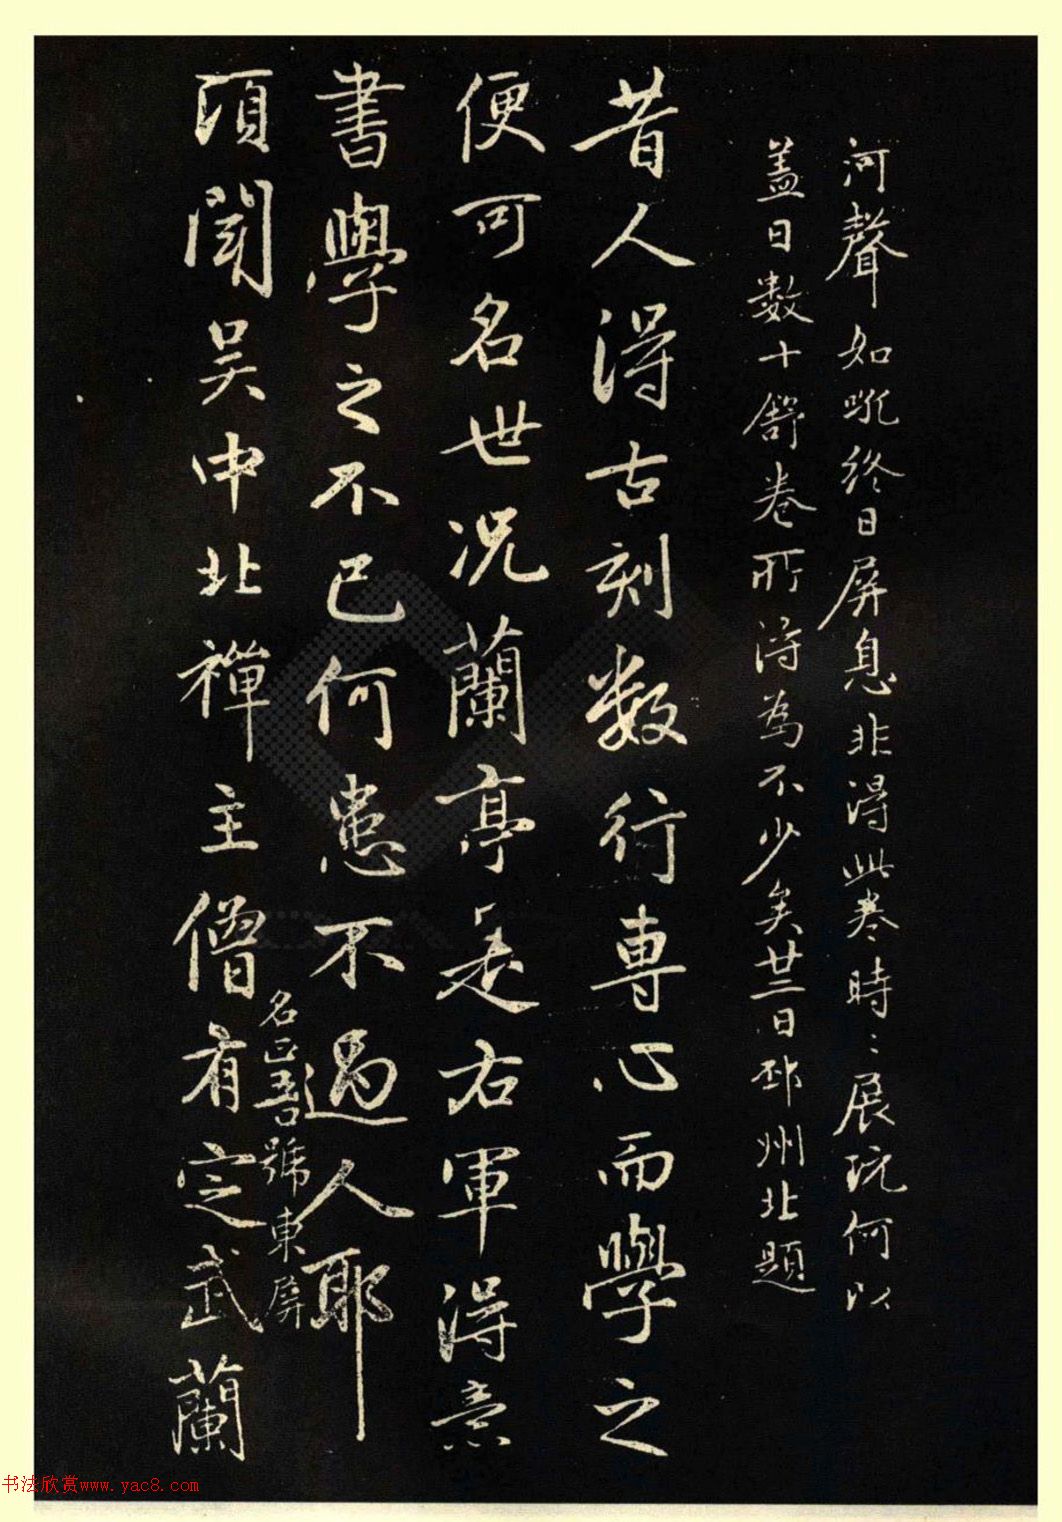 河聲如吼終日屏息非得此卷時時展玩何以
盖日數十舒卷所得為不少矣廿二日邳州北題
昔人得古刻数行專心而學之
便可名世况蘭亭是右軍得意
書學之不已何患不過人耶
頃聞吴中北禪主僧有定武蘭
名正吾號東屏
书法欣赏www.yac8.com